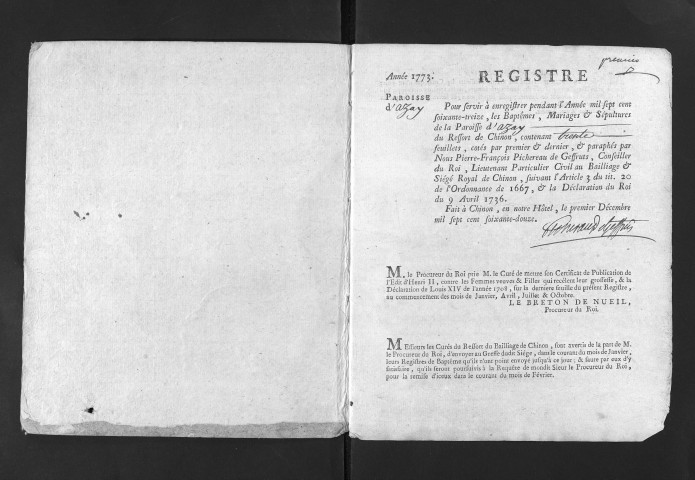 premier
Année 1773. REGISTRE
PAROISSE
d'azay
Pour servir à enregistrer pendant l'Année mil sept cent
soixante-treize, les Baptêmes, Mariages & Sépultures
de la Paroisse d'azay
du Ressort de Chinon, contenant trente
feuillets, cotés par premier & dernier, & paraphés par
Nous Pierre-François Pichereau de Geffruts, Conseiller
du Roi, Lieutenant Particulier Civil au Bailliage &
Siége Royal de Chinon, suivant l'Article 3 du tit. 20
de l'Ordonnance de 1667, & la Déclaration du Roi
du 9 Avril 1736.
Fait à Chinon, en notre Hôtel, le premier Décembre
mil sept cent soixante-douze.
M. le Procureur du Roi prie M. le Curé de mettre son Certificat de Publication de
l'Edit d'Henri II, contre les Femmes veuves & Filles qui recélent leur grossesse, & la
Déclaration de Louis XIV de l'année 1708, sur la derniere feuille du présent Registre,
au commencement des mois de Janvier, Avril, Juillet & Octobre.
LE BRETON DE NUEIL,
Procureur du Roi.
MEssieurs les Curés du Ressort du Bailliage de Chinon, sont avertis de la part de M.
le Procureur du Roi, d'envoyer au Greffe dudit Siége, dans le courant du mois de Janvier,
leurs Registres de Baptême qu'ils n'ont point envoyé jusqu'à ce jour; & faute par eux d'y
satisfaire, qu'ils seront poursuivis à la Requête de mondit Sieur le Procureur du Roi,
pour la remise d'iceux dans le courant du mois de Février.